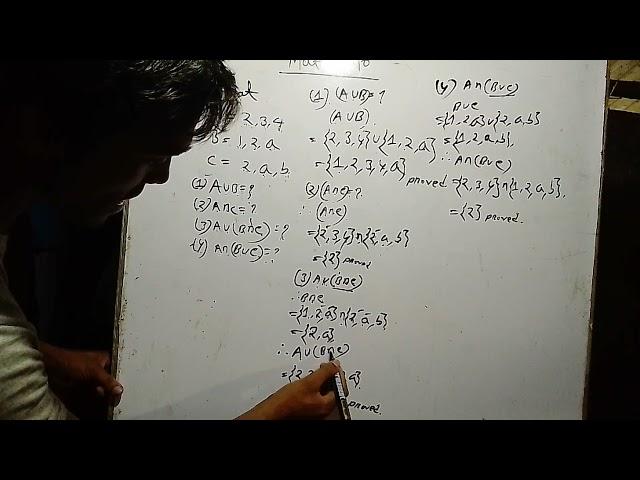 2,3,4
= 1, 2, a
C = 2, a, b
(1) A∪B = ?
(2) A∩C = ?
(3) A∪(B∩C) = ?
(4) A∩(B∪C) = ?
(1) (A∪B) = ?
(A∪B)
= {2, 3, 4}∪{1, 2, a}
= {1, 2, 3, 4, a} proved
(2) (A∩C) = ?
∴ (A∩C)
= {2, 3, 4}∩{2, a, b}
= {2} proved
(3) A∪(B∩C)
∴ B∩C
= {1, 2, a}∩{2, a, b}
= {2, a}
∴ A∪(B∩C)
= {2, a}
proved.
(4) A∩(B∪C)
B∪C
= {1, 2, a}∪{2, a, b}
= {1, 2, a, b}.
∴ A∩(B∪C)
= {2, 3, 4}∩{1, 2, a, b}.
= {2} proved.